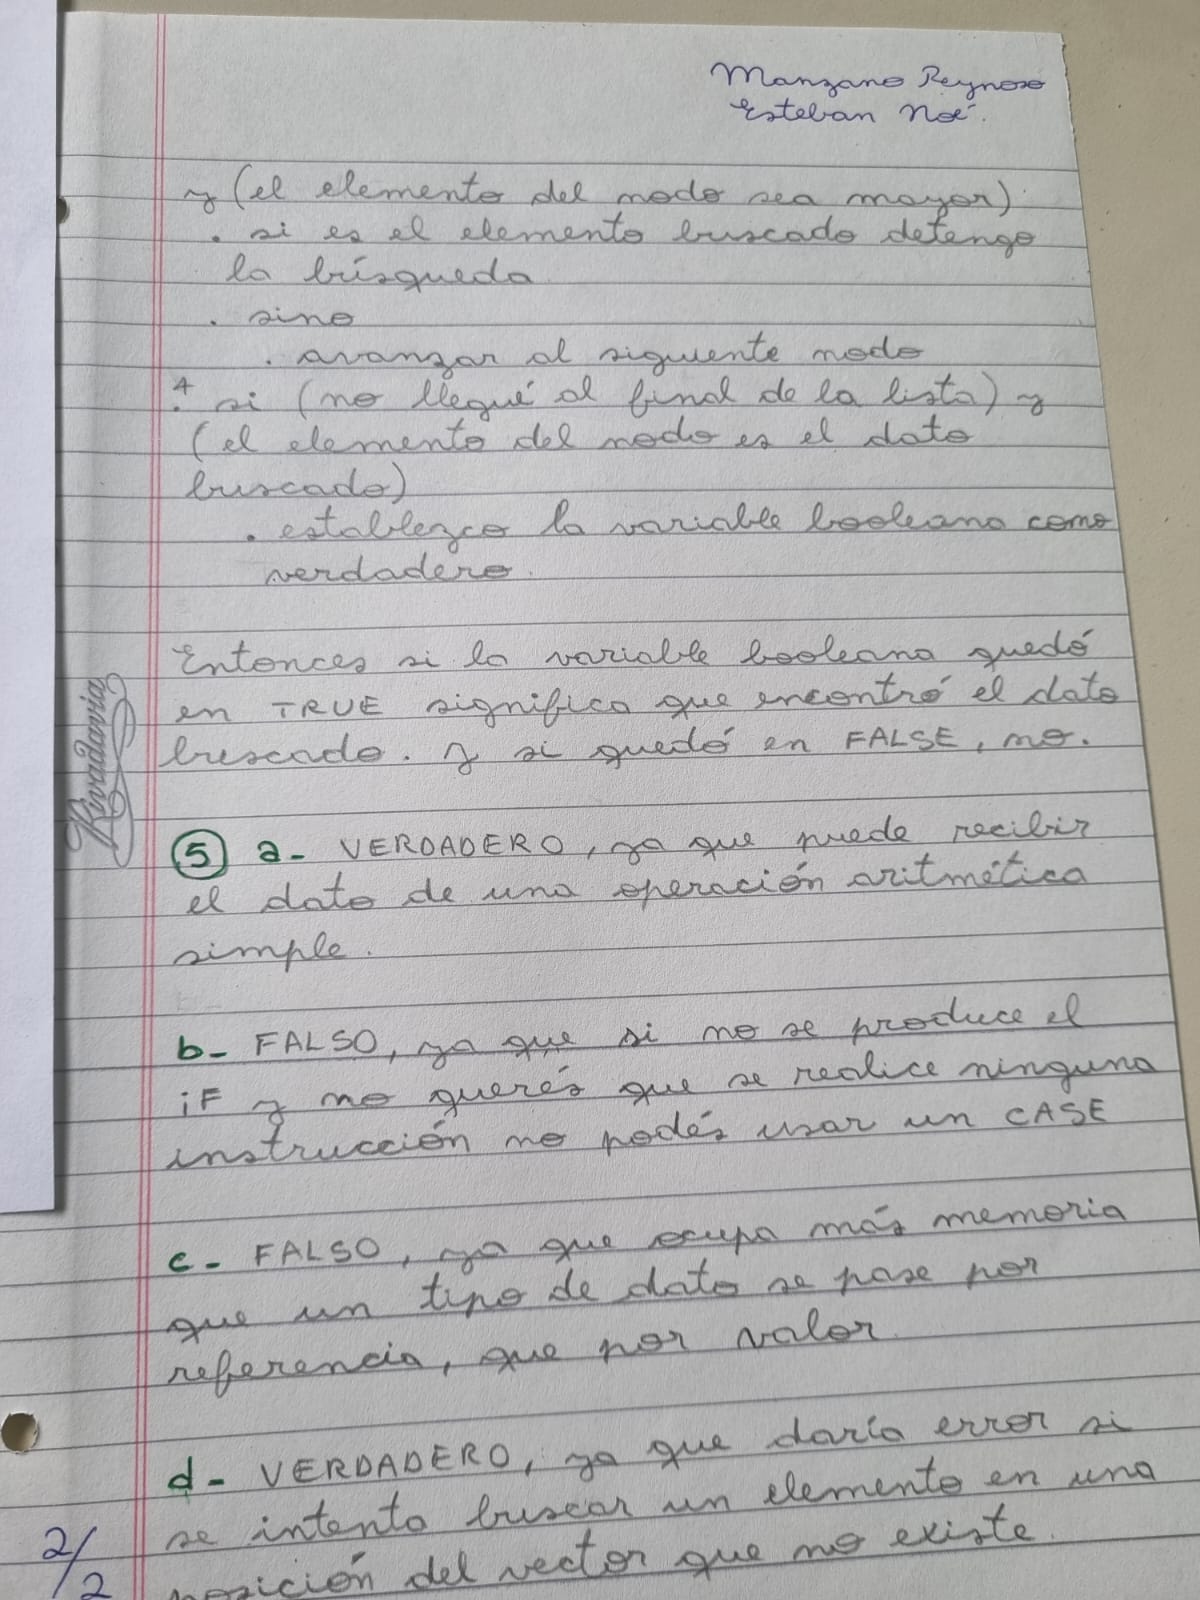 Manzano Reynoso
Esteban Noé.
y (el elemento del nodo sea mayor)
. si es el elemento buscado detengo
la búsqueda
. sino
. avanzar al siguiente nodo
4. si (no llegué al final de la lista) y
(el elemento del nodo es el dato
buscado)
. establezco la variable booleana como
verdadero.
Entonces si la variable booleana quedó
en TRUE significa que encontró el dato
buscado. Y si quedó en FALSE, no.
Rivadavia
5 a- VERDADERO, ya que puede recibir
el dato de una operación aritmética
simple.
b- FALSO, ya que si no se produce el
iF y no querés que se realice ninguna
instrucción no podés usar un CASE
c- FALSO, ya que ocupa más memoria
que un tipo de dato se pase por
referencia, que por valor.
d- VERDADERO, ya que daría error si
se intenta buscar un elemento en una
posición del vector que no existe.
2/2